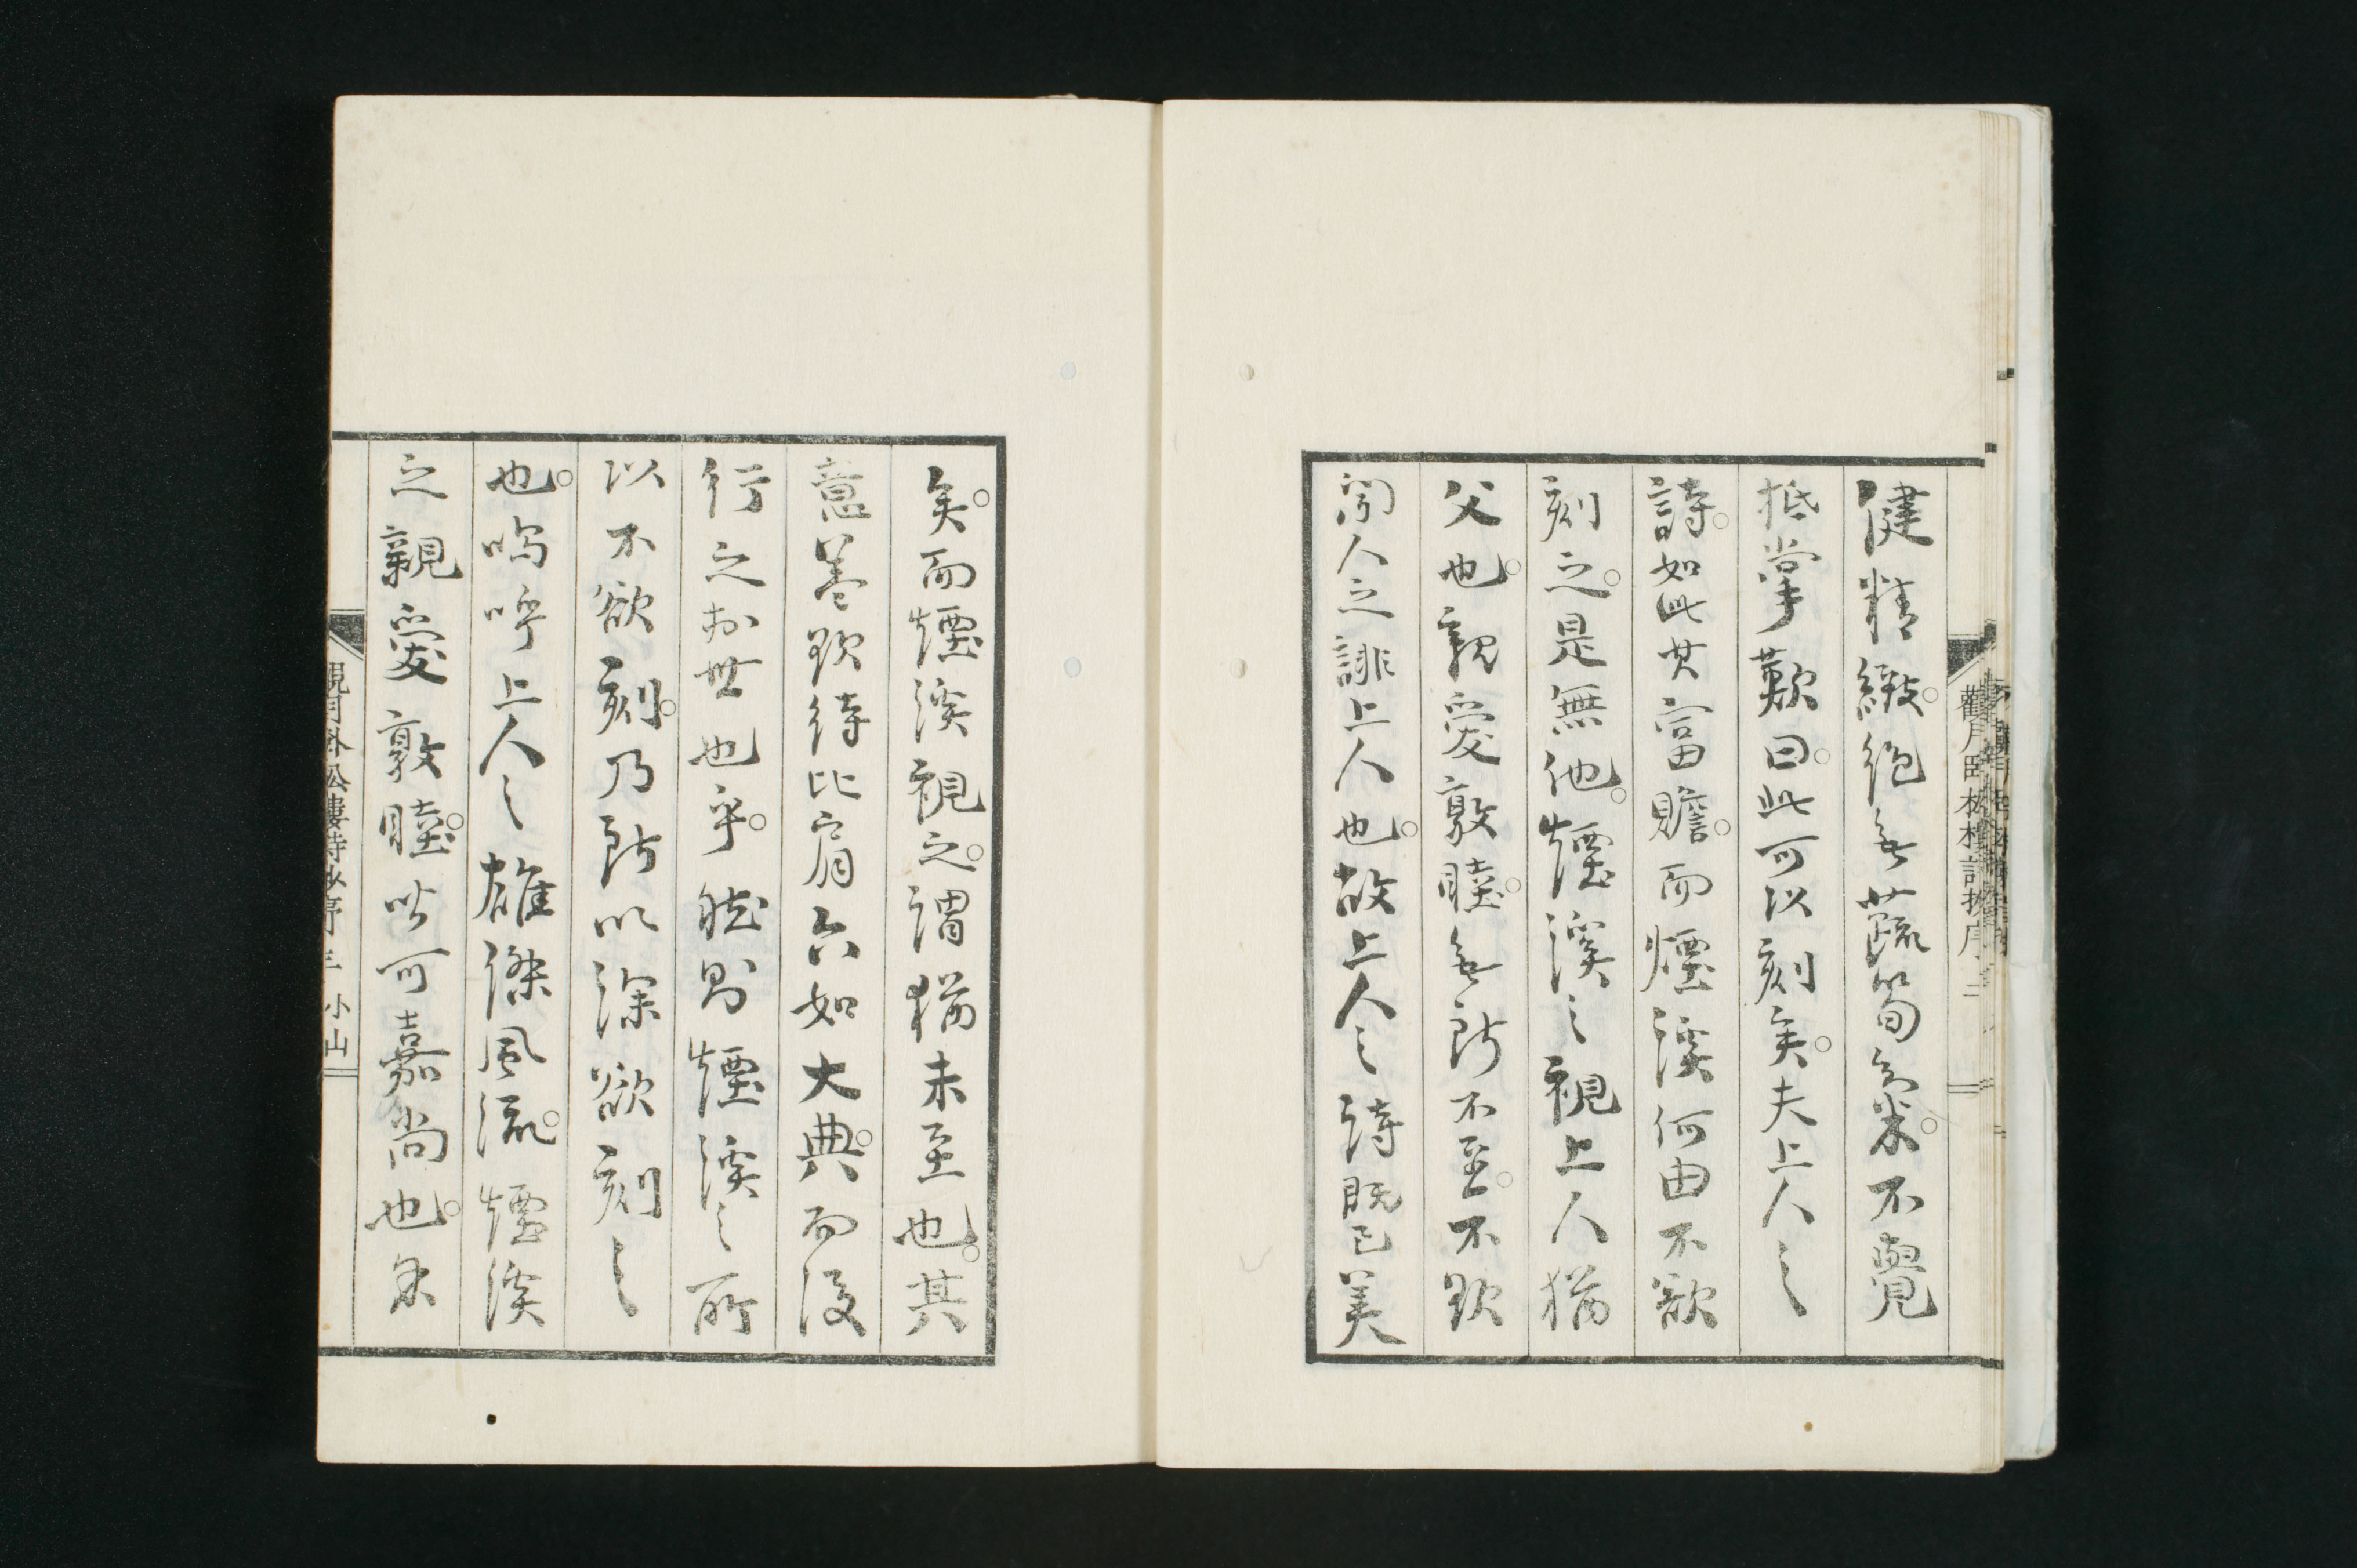 健精緻。絶無蔬筍氣象。不覺
抵掌歎曰。此可以刻矣。夫上人之
詩。如此其富贍。而煙溪何由不欲
刻之。是無他。煙溪之視上人猶
父也。親愛敦睦。無所不至。不欲
聞人之誹上人也。故上人之詩既已美
矣。而煙溪視之。謂猶未至也。其
意蓋欲待比肩六如大典。而後
行之於世也乎。然則煙溪之所
以不欲刻。乃所以深欲刻之
也。嗚呼上人之雄傑風流。煙溪
之親愛敦睦。皆可嘉尚也。余
觀月臥松樓詩抄序 二
觀月臥松樓詩抄序 三 小山